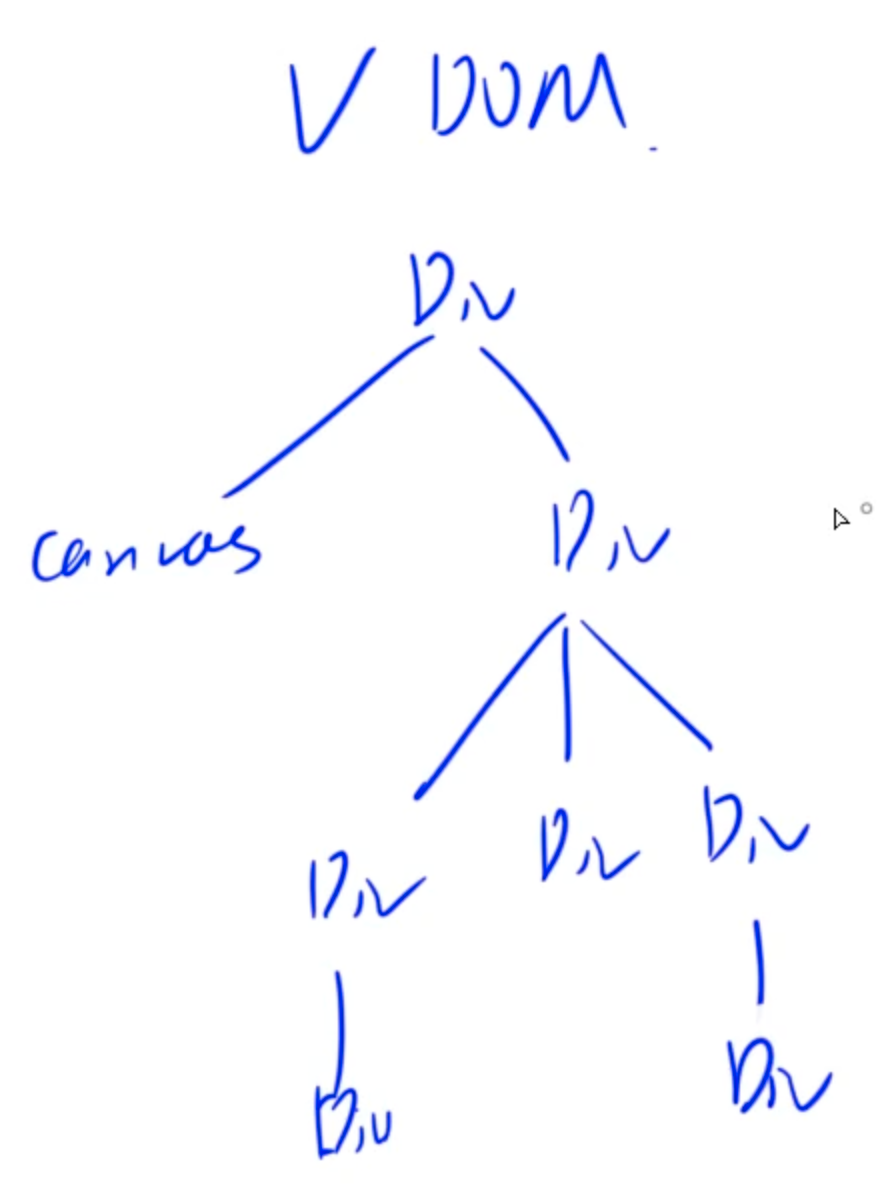 V DOM.
Div
Canvas Div
Div Div Div
Div Div